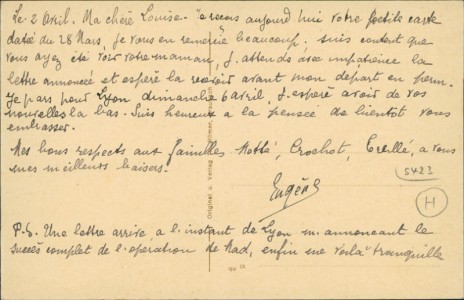 Le 2 Avril. Ma chère Louise. Je reçois aujourd'hui votre petite carte
datée du 28 Mars, je vous en remercie beaucoup, suis content que
vous ayez été voir votre maman, j. attends avec impatience la
lettre annoncée et espère la recevoir avant mon depart en perm.
Je pars pour Lyon dimanche 6 avril, j. espère avoir de vos
nouvelles la bas. Suis heureux a la pensée de bientot vous
embrasser.
Mes bons respects aux familles Motté, Crochot, Treillé, a vous
mes meilleurs baisers.
5423
Eugène
H
P.S. Une lettre arrive a l. instant de Lyon m. annonçant le
succès complet de l. operation de Mad, enfin me voila tranquille
Original u. Verlag